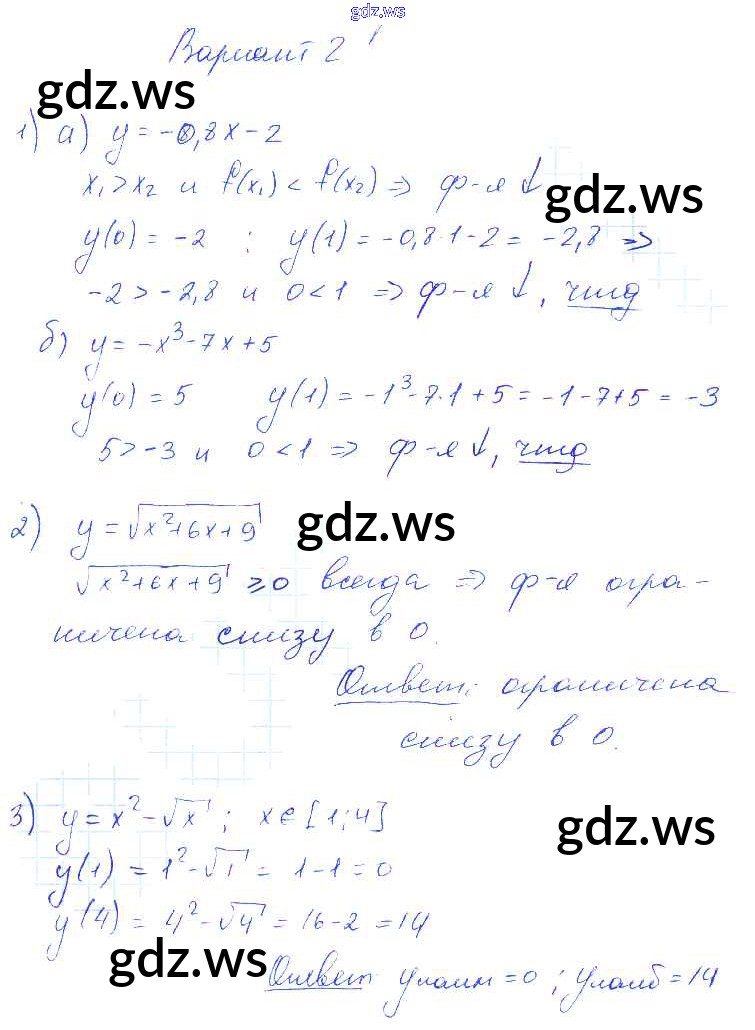 gdz.ws
Вариант 2
gdz.ws
1) а) y = -0,8x - 2
x₁ > x₂ и f(x₁) < f(x₂) => ф-я ↓
gdz.ws
y(0) = -2 ; y(1) = -0,8·1-2 = -2,8 =>
-2 > -2,8 и 0 < 1 => ф-я ↓, чтд
б) y = -x³ - 7x + 5
y(0) = 5 y(1) = -1³-7·1+5 = -1-7+5 = -3
5 > -3 и 0 < 1 => ф-я ↓, чтд
2) y = √(x²+6x+9) gdz.ws
√(x²+6x+9) ≥ 0 всегда => ф-я огра-
ничена снизу в 0.
Ответ: ограничена
снизу в 0.
3) y = x² - √x ; x ∈ [1;4]
gdz.ws
y(1) = 1² - √1 = 1 - 1 = 0
y(4) = 4² - √4 = 16 - 2 = 14
gdz.ws
Ответ: yнаим = 0 ; yнаиб = 14